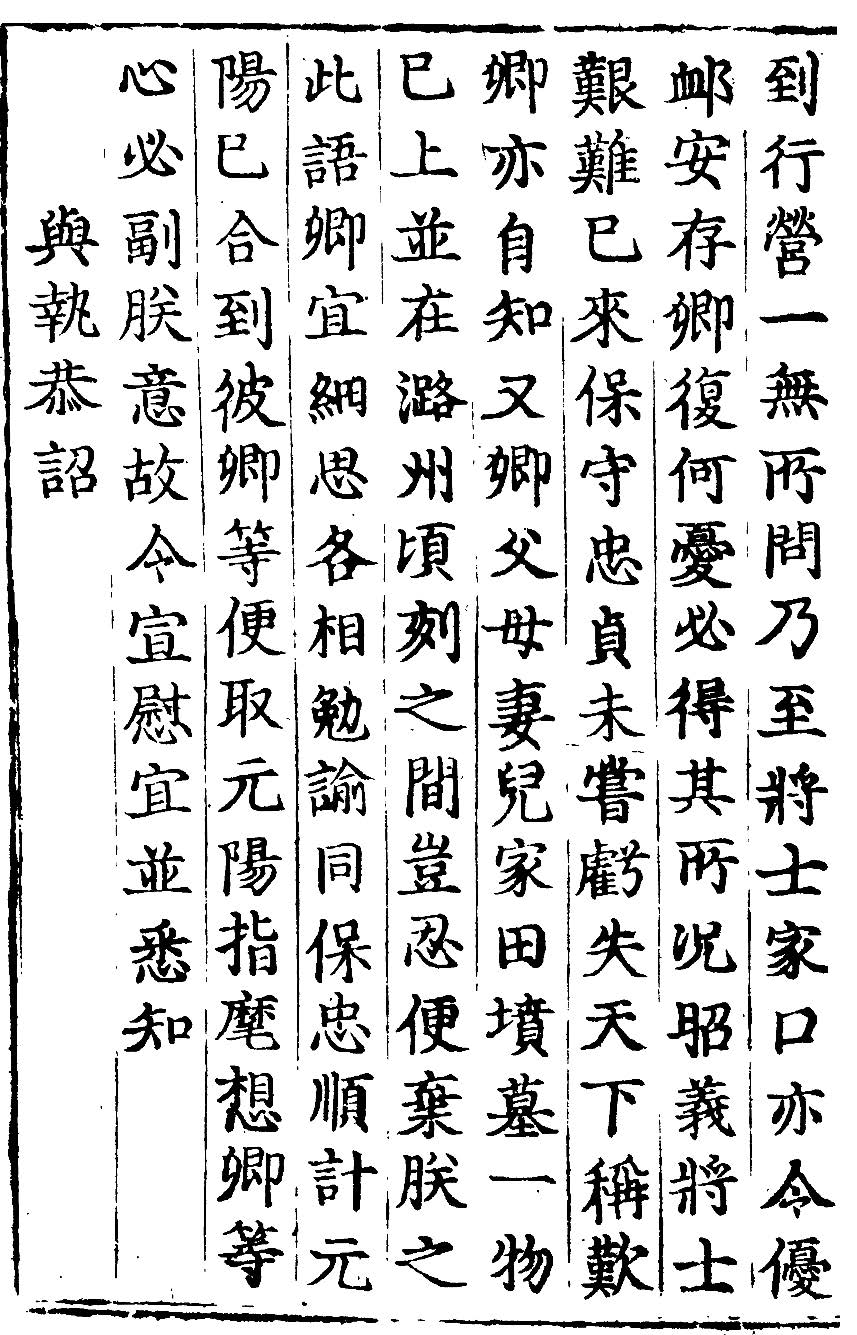 到行營一無所問乃至將士家口亦令優
卹安存卿復何憂必得其所况昭義將士
艱難已來保守忠貞未嘗虧失天下稱歎
卿亦自知又卿父母妻兒家田墳墓一物
已上並在潞州頃刻之間豈忍便棄朕之
此語卿宜細思各相勉諭同保忠順計元
陽已合到彼卿等便取元陽指麾想卿等
心必副朕意故令宣慰宜並悉知
與執恭詔